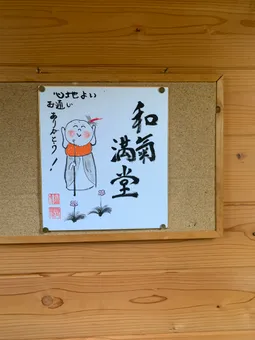 和氣
満堂
心地よい
お通じ
ありがとう!